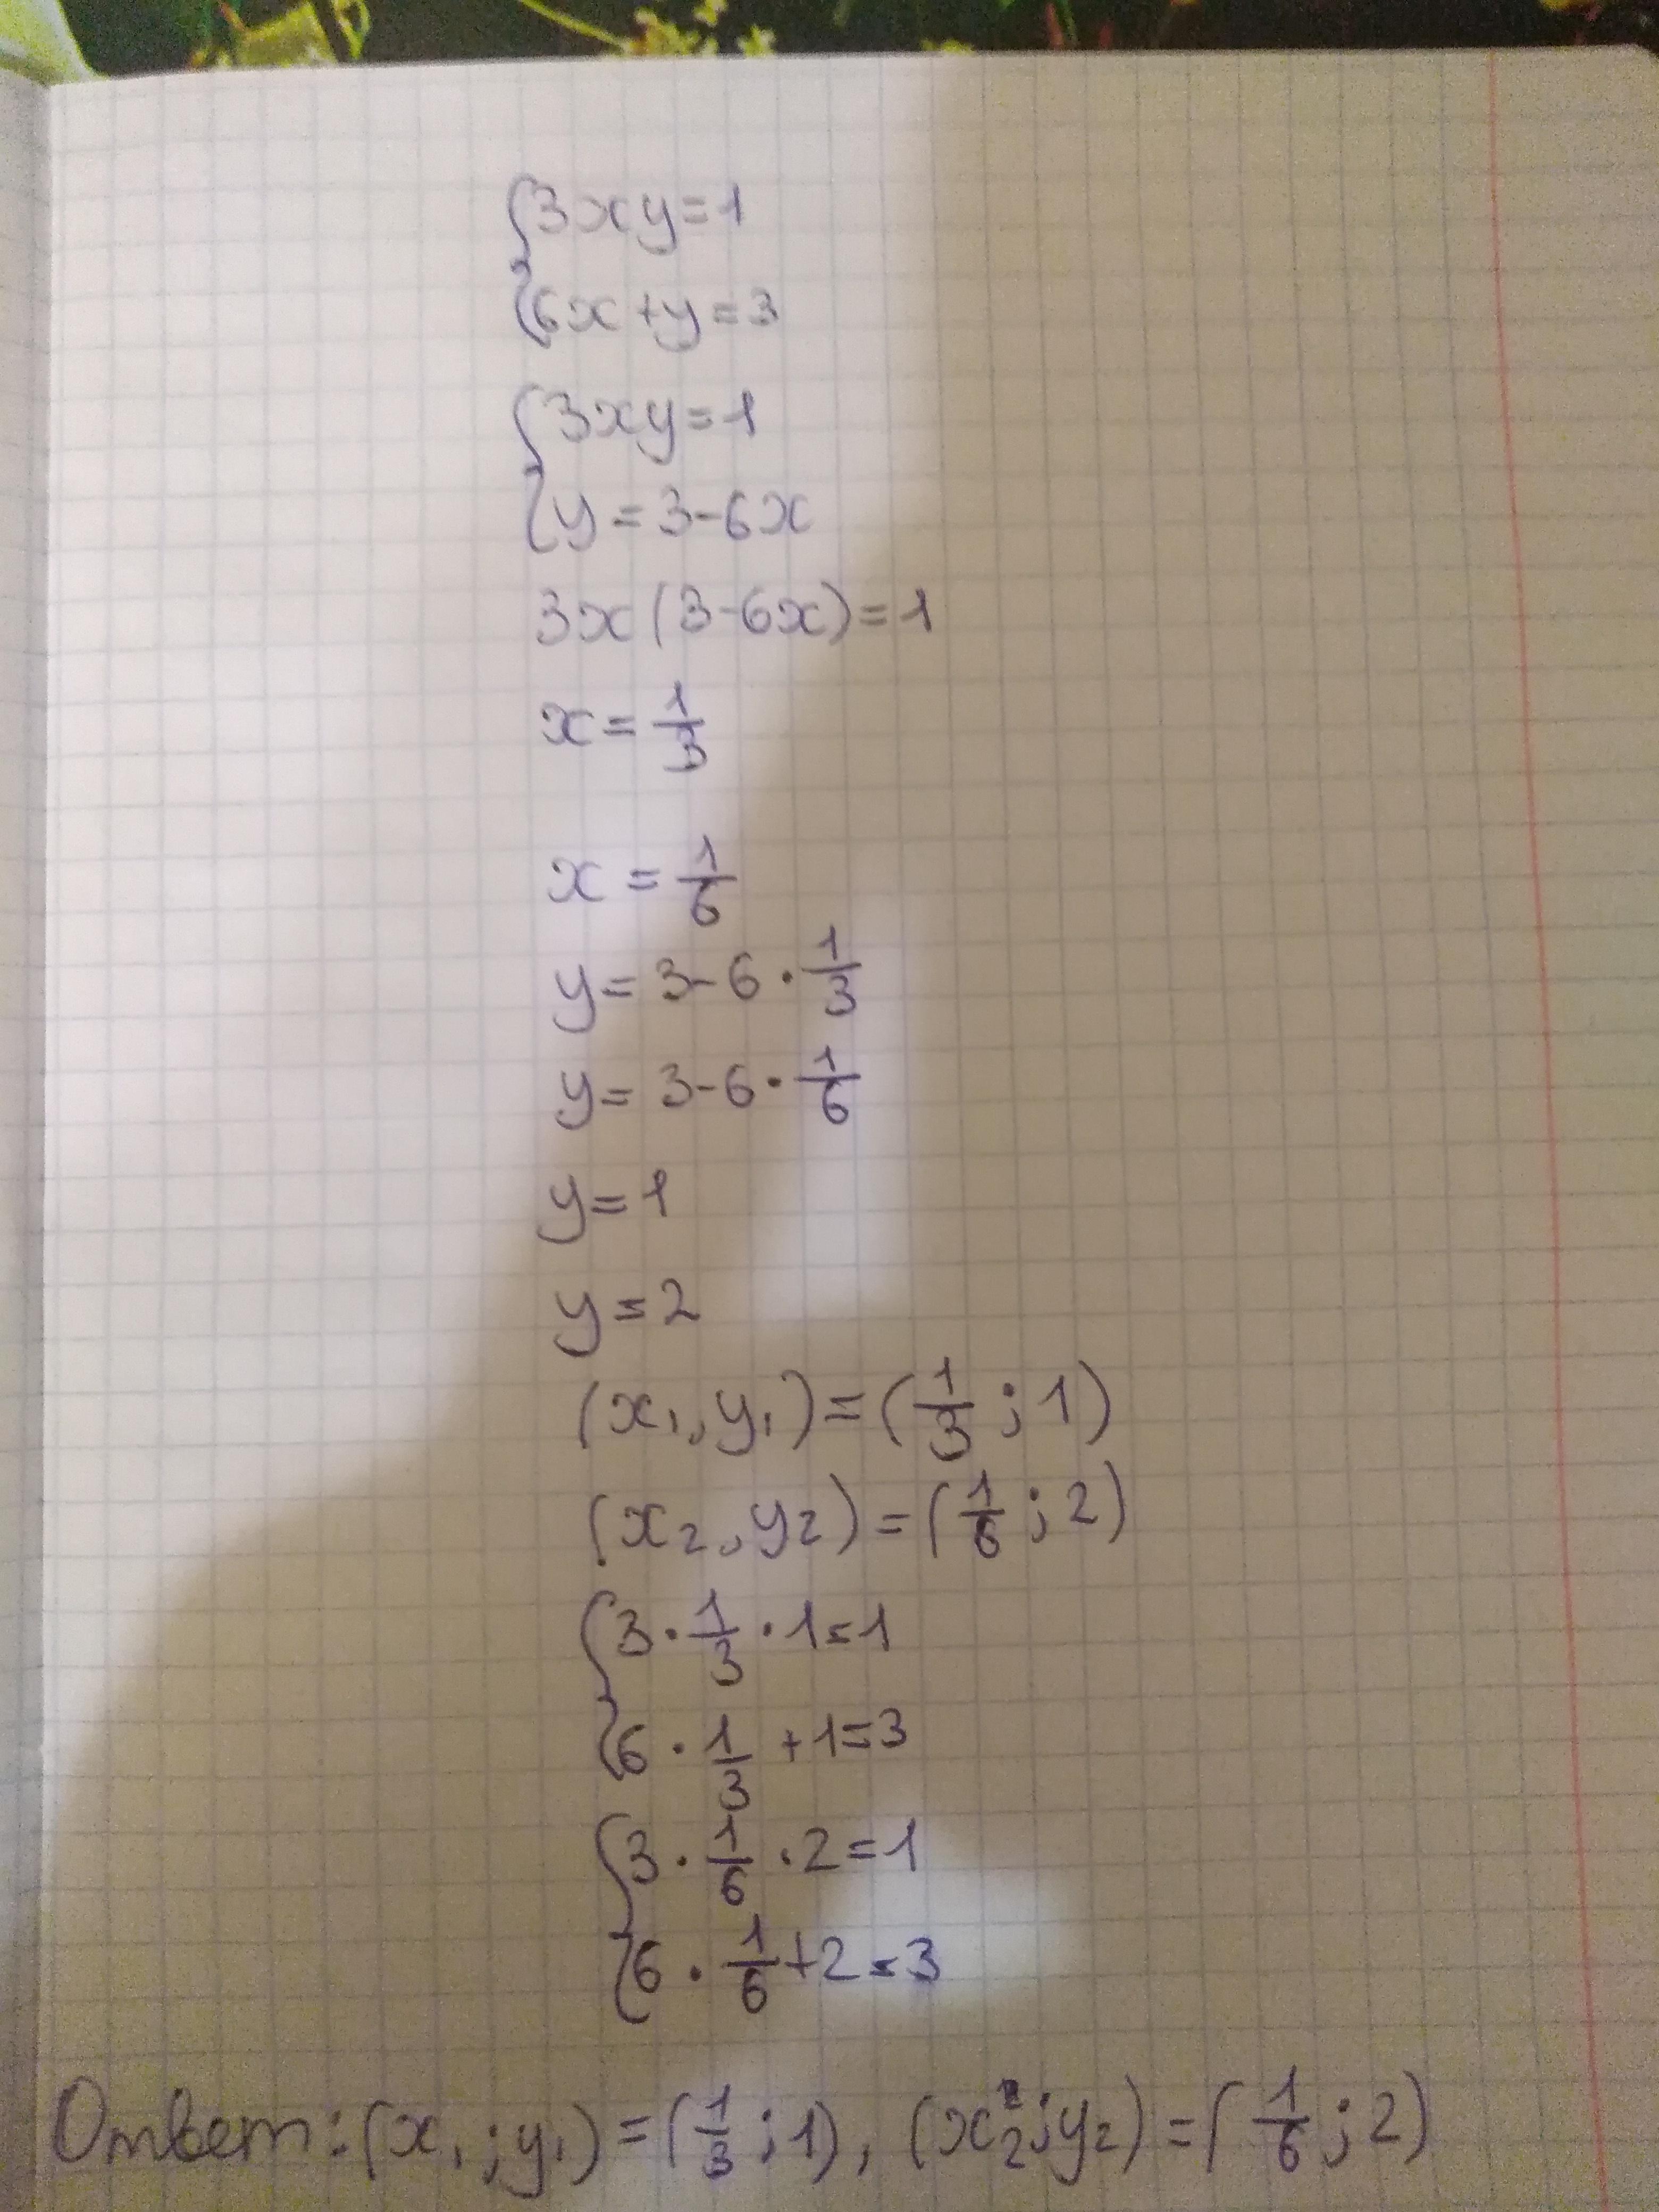 {3xy=1
{6x+y=3
{3xy=1
{y=3-6x
3x(3-6x)=1
x=1/3
x=1/6
y=3-6·1/3
y=3-6·1/6
y=1
y=2
(x₁,y₁)=(1/3;1)
(x₂,y₂)=(1/6;2)
{3·1/3·1=1
{6·1/3+1=3
{3·1/6·2=1
{6·1/6+2=3
Ответ:(x₁;y₁)=(1/3;1), (x₂;y₂)=(1/6;2)